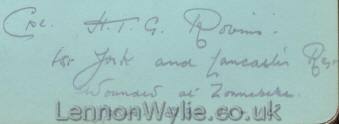 Cpl. H. T. G. Rovini.
1st York and Lancaster Reg.
Wounded at Zonnebeke.
LennonWylie.co.uk